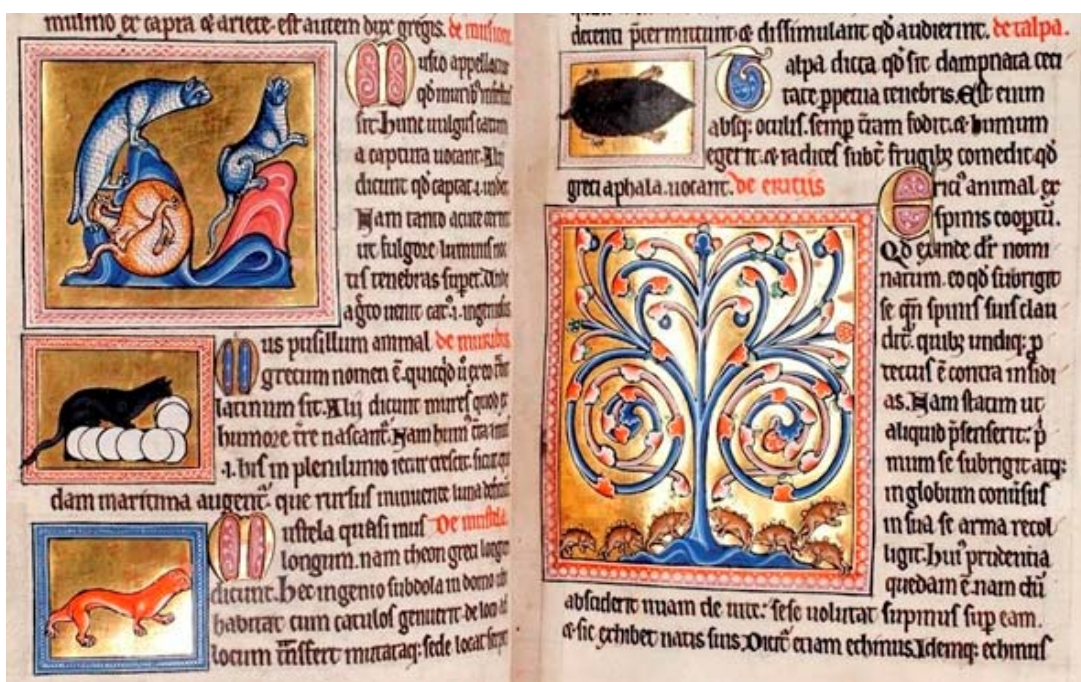 musmo ex capra & ariete. est autem dux gregis. de musione
Musio appellatur
qđ murib; infestus
sit. Hunc uulgus catum
a captura uocant. Alii
dicunt qđ captat .i. uidet.
Nam tanto acute cernit
ut fulgore luminis noc
tis tenebras superet. Unde
a greco uenit cat' .i. ingeniosus
Mus pusillum animal de muribus
grecum nomen ē. quicqđ ů ex eo
latinum fit. Alii dicunt mures quod ex
humore tre nascant. Nam humus
.i. his in plenilunio iecur crescit. sicut que
dam maritima augent. que rursus minuente luna
Mustela quasi mus De mustela
longum. nam theon greci longum
dicunt. Hec ingenio subdola in domo ubi
habitat cum catulos genuerit de loco ad
locum transfert mutataq; sede locat
decenti ptermittunt & dissimulant qđ audierint. de talpa.
Talpa dicta qđ sit dampnata ceci
tate ppetua tenebris. Est enim
absq; oculis. semp tram fodit. & humum
egerit. & radices subt frugib; comedit. qđ
greci aphala. uocant. de ericiis
Erici' animal ex
spinis coopertū.
Qđ exinde dr nomi
natum. eo qđ subrigit
se qn spinis suis clau
ditr. quib; undiq; p
tectus ē contra insidi
as. Nam statim ut
aliquid psenserit: p
mum se subrigit atq;
in globum conusus
in sua se arma recol
ligit. Hui' prudentia
quedam ē. nam dū
absciderit uuam de uite: sese uolutat supinus sup eam.
& sic exhibet natis suis. Dicit' etiam echinus. Idemq; echinus